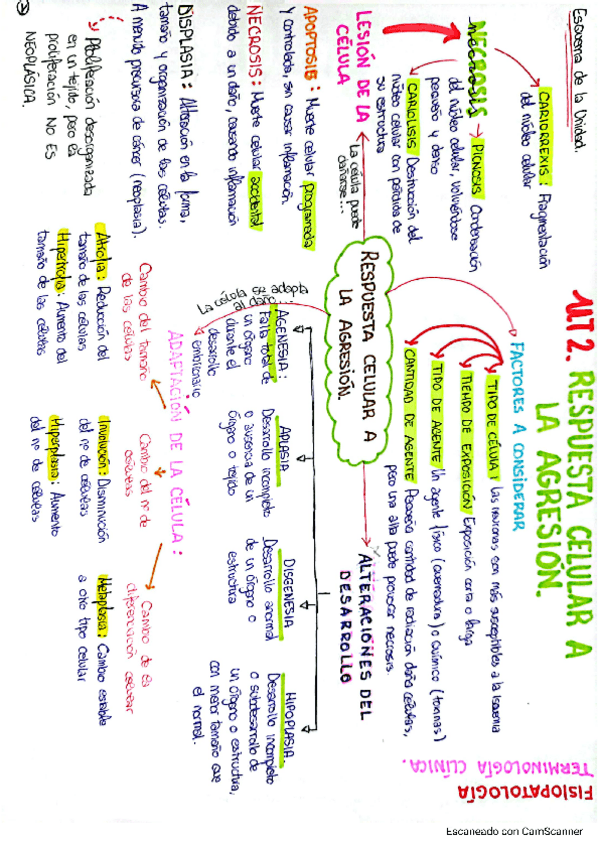 Esquema de la Unidad.
UT 2. RESPUESTA CELULAR A
LA AGRESIÓN.
FISIOPATOLOGÍA
TERMINOLOGÍA CLÍNICA.
RESPUESTA CELULAR A
LA AGRESIÓN.
FACTORES A CONSIDERAR
TIPO DE CÉLULA: Las neuronas son más susceptibles a la isquemia
TIEMPO DE EXPOSICIÓN Exposición corta o larga
TIPO DE AGENTE Un agente físico (quemadura) o químico (toxinas)
CANTIDAD DE AGENTE Pequeña cantidad de radiación daña células,
pero una alta puede provocar necrosis.
La célula puede
dañarse...
LESIÓN DE LA
CÉLULA
NECROSIS
CARIORREXIS: Fragmentación
del núcleo celular
PICNOSIS Condensación
del núcleo celular, volviéndose
pequeño y denso
CARIOLISIS Destrucción del
núcleo celular con pérdida de
su estructura
APOPTOSIS: Muerte celular programada
y controlada, sin causar inflamación
NECROSIS: Muerte celular accidental
debido a un daño, causando inflamación
DISPLASIA: Alteración en la forma,
tamaño y organización de las células.
A menudo precursora de cáncer (neoplasia).
Proliferación desorganizada
en un tejido, pero la
proliferación NO ES
NEOPLÁSICA.
ALTERACIONES DEL
DESARROLLO
AGENESIA:
Falta total de
un órgano
durante el
desarrollo
embrionario
APLASIA
Desarrollo incompleto
o ausencia de un
órgano o tejido
DISGENESIA
Desarrollo anormal
de un órgano o
estructura
HIPOPLASIA
Desarrollo incompleto
o subdesarrollo de
un órgano o estructura,
con menor tamaño que
el normal.
La célula se adapta
al daño...
ADAPTACIÓN DE LA CÉLULA:
Cambio del tamaño
de las células
Atrofia: Reducción del
tamaño de las células
Hipertrofia: Aumento del
tamaño de las células
Cambio del nº de
células
Involución: Disminución
del nº de células
Hiperplasia: Aumento
del nº de células
Cambio de la
diferenciación celular
Metaplasia: Cambio estable
a otro tipo celular
Escaneado con CamScanner